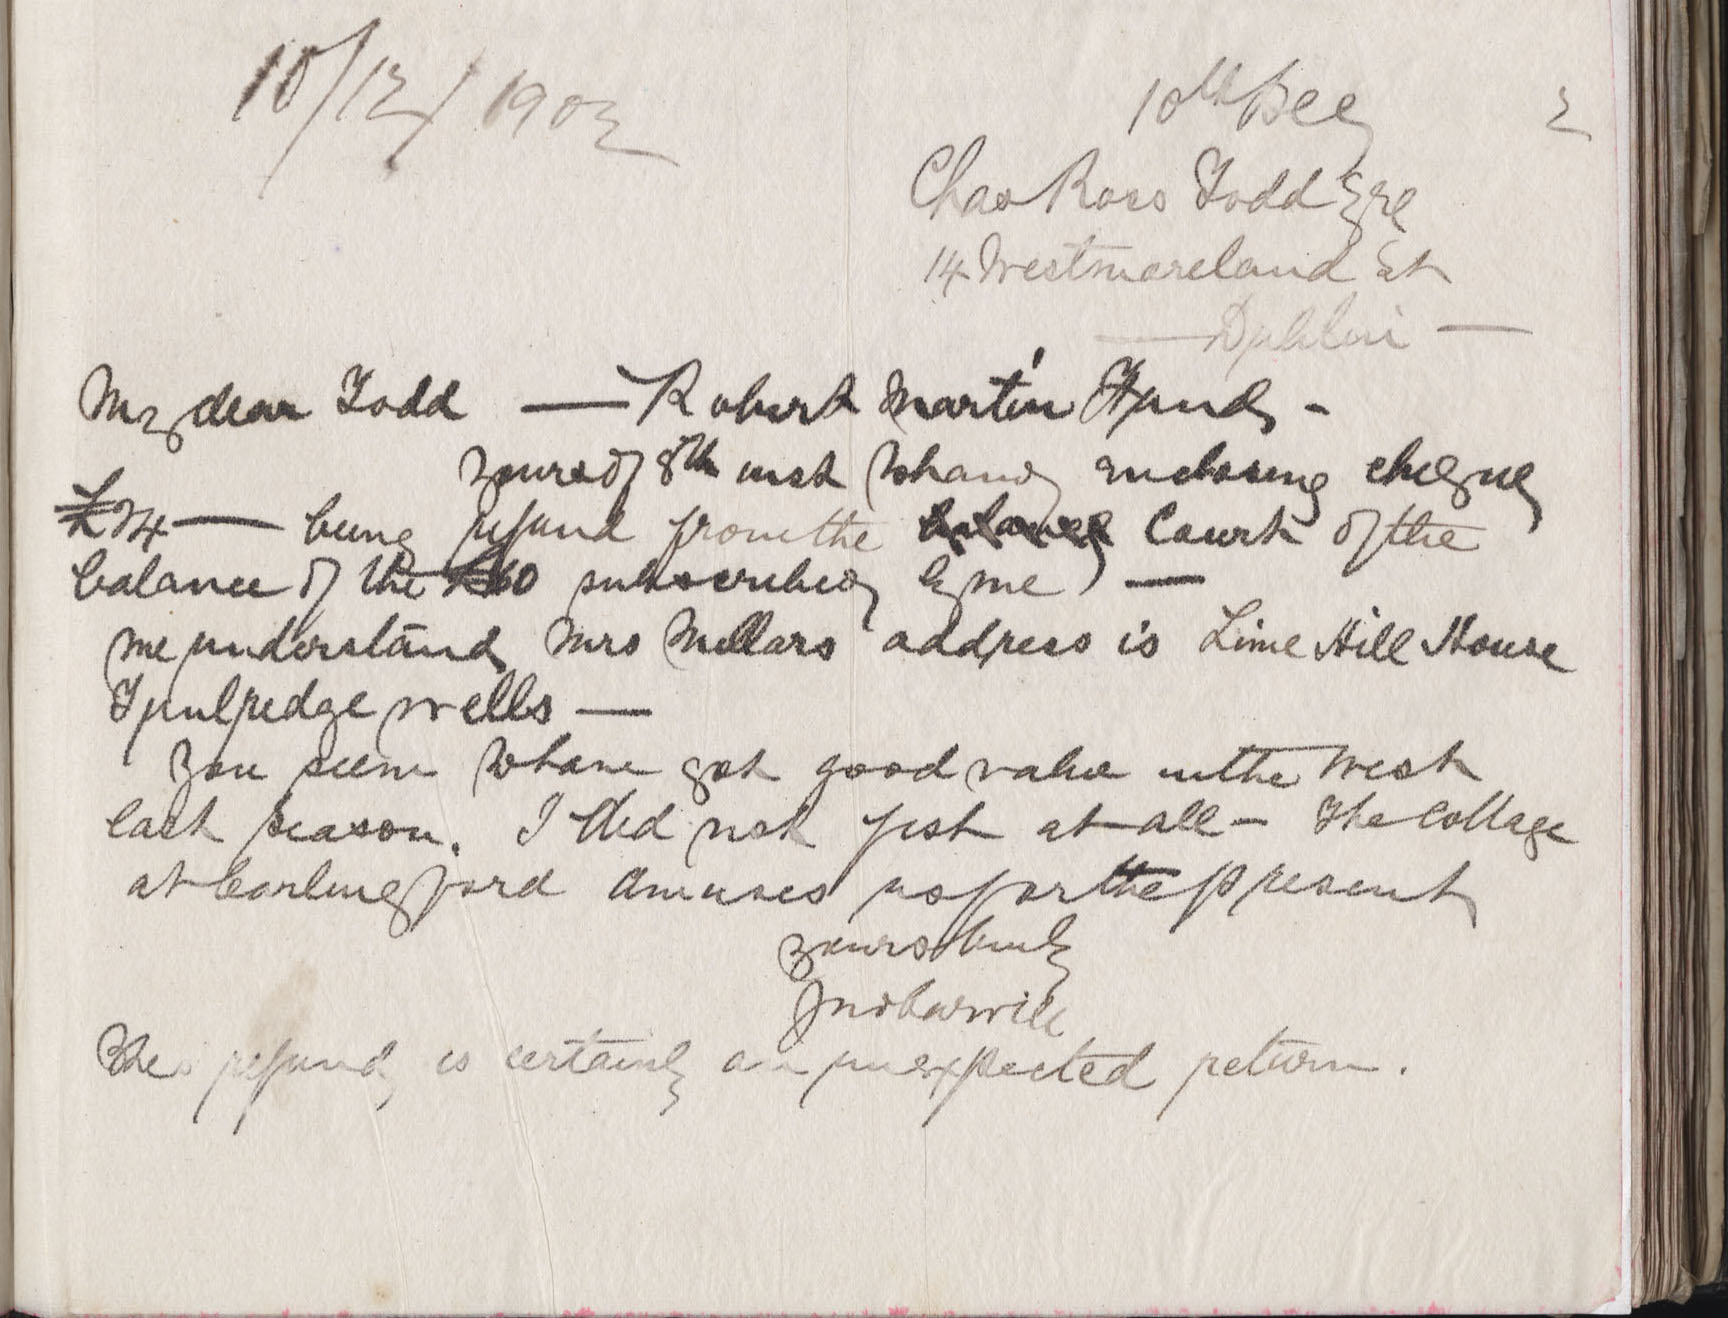 10/12/1902
10th Dec 2
Chas Ross Todd Esqe
14 Westmoreland St
— Dublin —
My dear Todd — Robert Martin Fund -
Yours of 8th inst to hand enclosing cheque
£24 — being refund from the Court of the
balance of the £60 subscribed by me —
We understand Mrs Millars address is Lime Hill House
Tunbridge Wells —
You seem to have got good value in the West
last season. I did not fish at all - The Cottage
at Carlingford amuses us for the present
Yours truly
Jno Barwill
The refund is certainly an unexpected return.